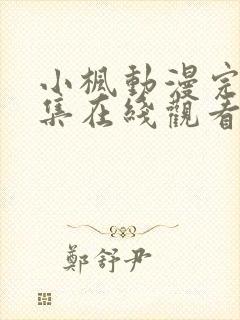 小楓動漫完
集在綫觀看
鄭舒尹